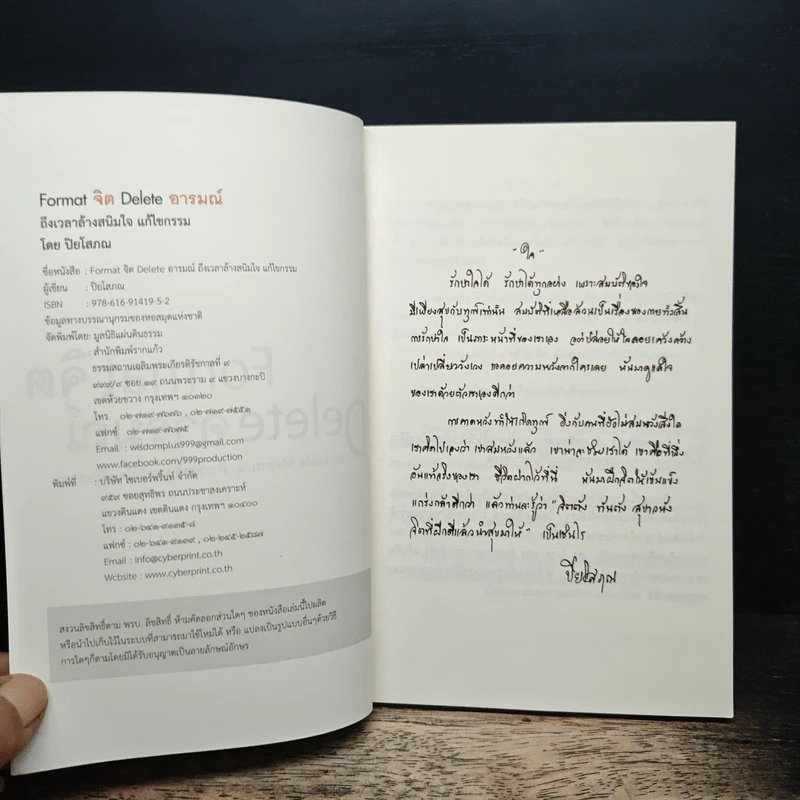 Format จิต Delete อารมณ์
ถึงเวลาล้างสนิมใจ แก้ไขกรรม
โดย ปิยโสภณ
ชื่อหนังสือ : Format จิต Delete อารมณ์ ถึงเวลาล้างสนิมใจ แก้ไขกรรม
ผู้เขียน : ปิยโสภณ
ISBN : 978-616-91419-5-2
ข้อมูลทางบรรณานุกรมของหอสมุดแห่งชาติ
จัดพิมพ์โดย: มูลนิธิแผ่นดินธรรม
: สำนักพิมพ์รากแก้ว
ธรรมสถานเฉลิมพระเกียรติรัชกาลที่ ๙
๙๙๙/๙ ซอย ๑๙ ถนนพระราม ๙ แขวงบางกะปิ
เขตห้วยขวาง กรุงเทพฯ ๑๐๓๒๐
โทร. ๐๒-๗๑๙-๗๖๗๖ , ๐๒-๗๑๙-๗๕๕๑
แฟกซ์ ๐๒-๗๑๙-๗๖๗๕
Email : wisdomplus999@gmail.com
www.facebook.com/999production
พิมพ์ที่ : บริษัท ไซเบอร์พริ้นท์ จำกัด
๙๕๙ ซอยสุทธิพร ถนนประชาสงเคราะห์
แขวงดินแดง เขตดินแดง กรุงเทพฯ ๑๐๔๐๐
โทร : ๐๒-๖๔๑-๙๑๓๕-๘
แฟกซ์ : ๐๒-๖๔๑-๙๑๓๙ , ๐๒-๒๔๕-๒๕๘๗
Email : info@cyberprint.co.th
Website : www.cyberprint.co.th
สงวนลิขสิทธิ์ตาม พรบ. ลิขสิทธิ์ ห้ามคัดลอกส่วนใดๆ ของหนังสือเล่มนี้ไปผลิต
หรือนำไปเก็บไว้ในระบบที่สามารถมาใช้ใหม่ได้ หรือ แปลงเป็นรูปแบบอื่นๆด้วยวิธี
การใดๆก็ตามโดยมิได้รับอนุญาตเป็นลายลักษณ์อักษร
"ใจ"
รักษาใจได้ รักษาได้ทุกอย่าง เพราะสมบัติของใจ
มีเพียงสุขกับทุกข์เท่านั้น สมบัติที่เหลือล้วนเป็นเรื่องของกายทั้งสิ้น
การรักษาใจ เป็นภาระ หน้าที่ของเราเอง อย่าปล่อยให้ใจลอยเคว้งคว้าง
เปล่าเปลี่ยววังเวง รอคอยความหวังจากใครเลย หันมาดูแลใจ
ของเราด้วยตัวเราเองดีกว่า
การคาดหวังทำให้เกิดทุกข์ ยิ่งกับคนที่ยังไม่สมหวังดั่งใจ
เราคิดไปเองว่า เขาสมหวังแล้ว เขาน่าจะช่วยเราได้ เขาคือที่พึ่ง
อันแท้จริงของเรา ชีวิตฝากไว้ที่นี่ หันมาฝึกจิตให้เข้มแข็ง
แกร่งกล้าดีกว่า แล้วท่านจะรู้ว่า "จิตตัง ทันตัง สุขาวหัง
จิตที่ฝึกดีแล้วนำสุขมาให้" เป็นเช่นไร
ปิยโสภณ